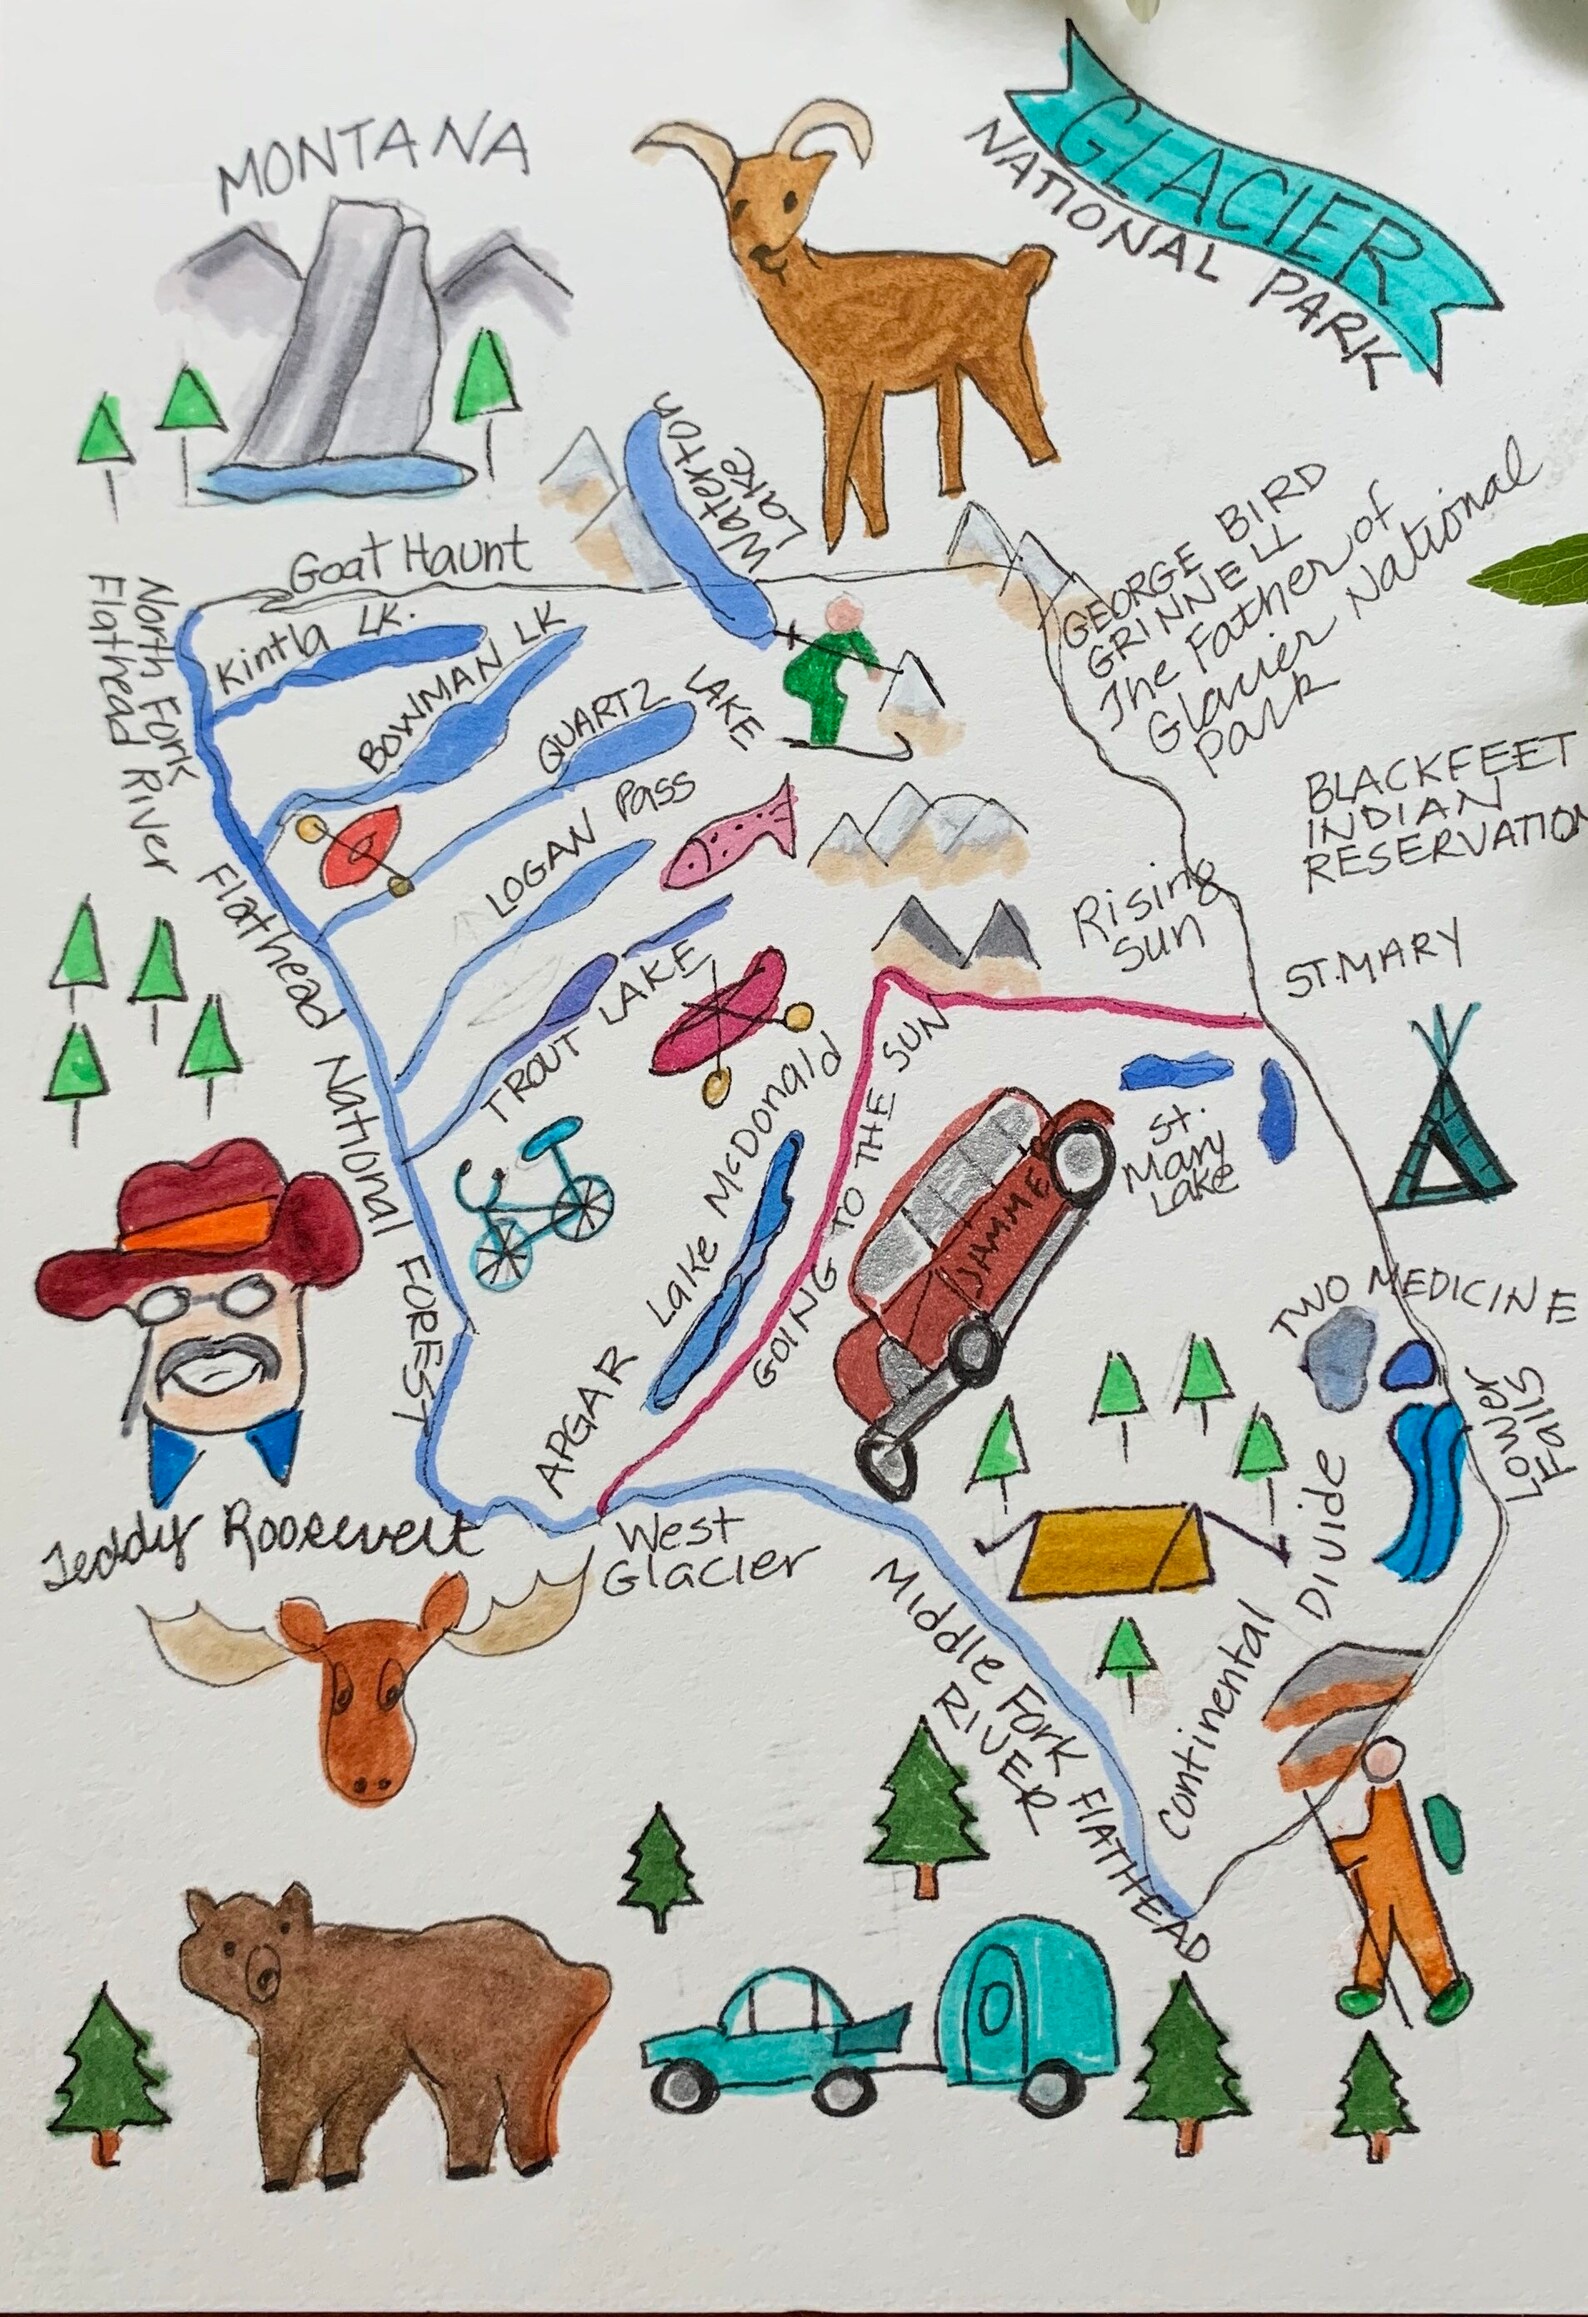 MONTANA
GLACIER
NATIONAL PARK
Waterton
Lake
Goat Haunt
GEORGE BIRD
GRINNELL
The Father of
Glacier National
Park
North Fork
Flathead River
Kintla LK.
BOWMAN LK
QUARTZ LAKE
LOGAN Pass
BLACKFEET
INDIAN
RESERVATION
Rising
Sun
ST. MARY
Flathead National FOREST
TROUT LAKE
Lake McDonald
GOING TO THE SUN
JAMMER
St.
Mary
Lake
TWO MEDICINE
Lower
Falls
APGAR
Teddy Roosevelt
West
Glacier
Middle Fork FlATHEAD
RIVER
Continental Divide